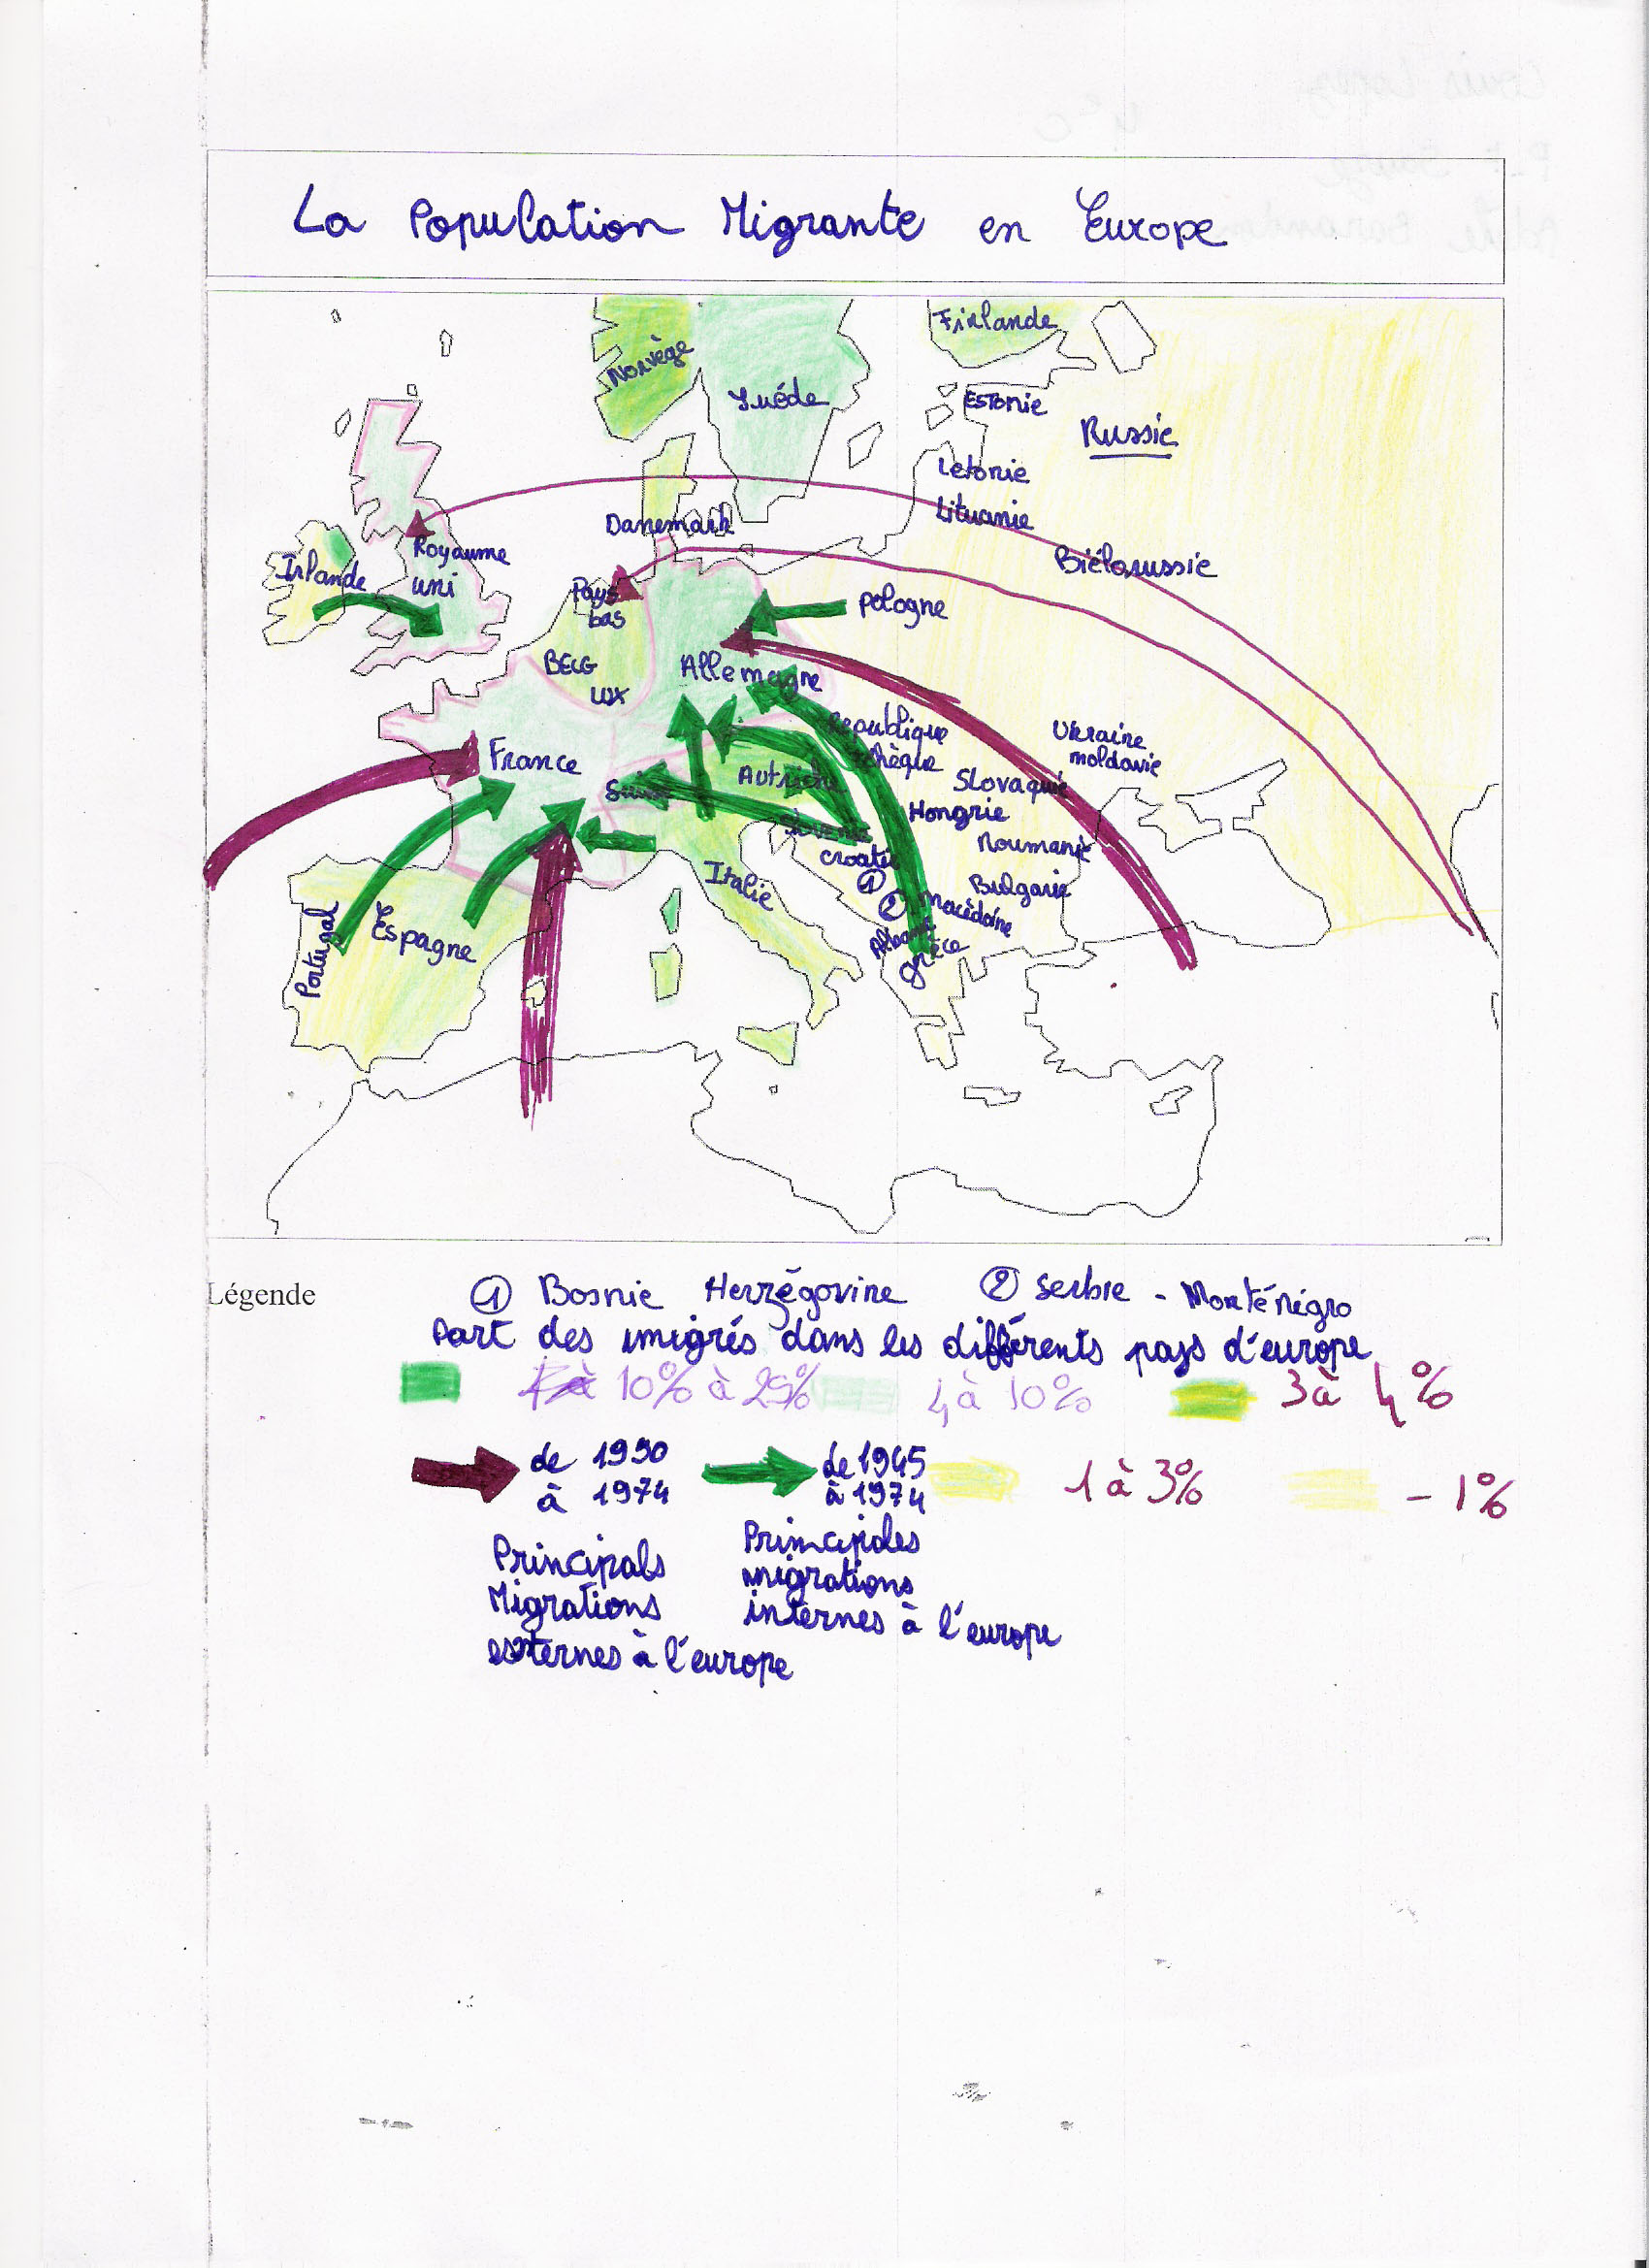 La Population Migrante en Europe
Finlande
Norvège
Suéde
ESTONIE
Russie
Letonie
Lituanie
Danemark
Royaume
uni
Irlande
Biélorussie
Pays
bas
Pologne
BELG
LUX
Allemagne
France
République
tchèque
Ukraine
moldavie
Suisse
Autriche
Slovaquie
Hongrie
Slovénie
Roumanie
Croatie
①
Italie
Bulgarie
②
Macédoine
Albanie
grèce
Portugal
Espagne
Légende
① Bosnie Herzégovine ② Serbie - Monténégro
Part des imigrés dans les différents pays d'europe
10% à 25% 4 à 10% 3 à 4%
de 1990 de 1945
à 1974 à 1974 1 à 3% - 1%
Principals Principales
Migrations migrations
externes à l'europe internes à l'europe